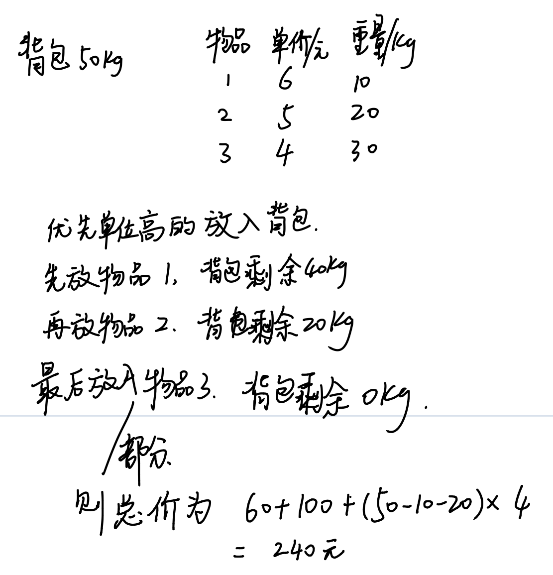 背包50kg
物品 单价/元 重量/kg
1 6 10
2 5 20
3 4 30
优先单位高的放入背包.
先放物品1, 背包剩余40kg
再放物品2. 背包剩余20kg
最后放入物品3. 背包剩余0kg.
部分
则总价为 60+100+(50-10-20)×4
= 240元